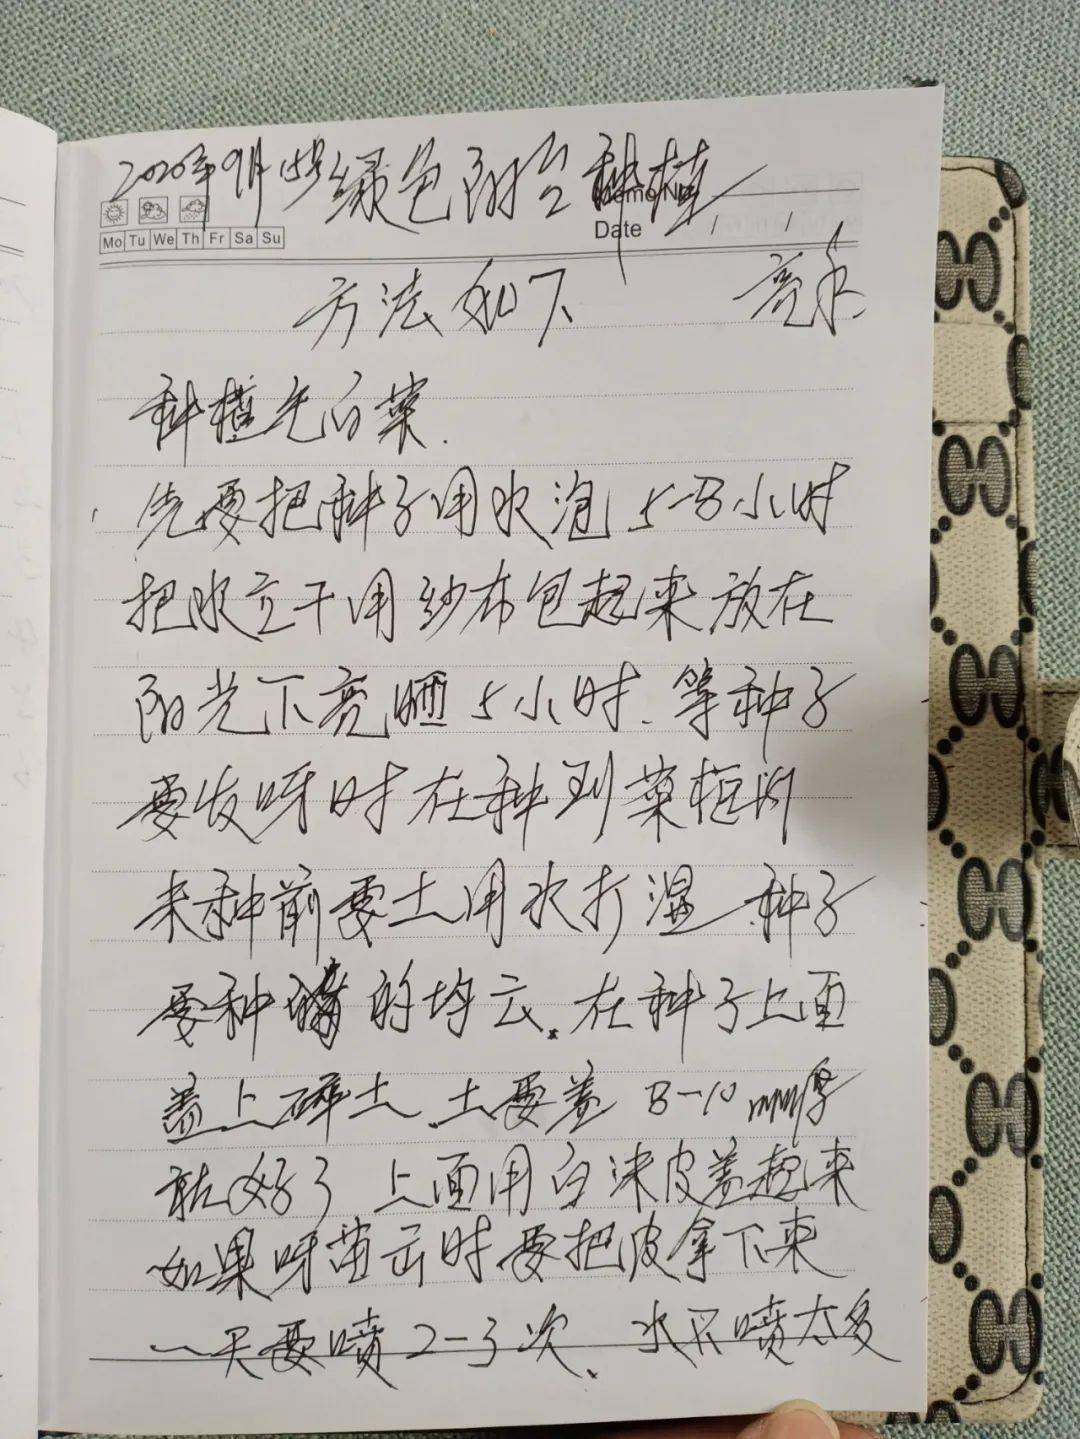 2020年9月15号绿色阳台种植
Memo No.
Mo Tu We Th Fr Sa Su
Date / /
方法如下 亮永
种植毛白菜.
先要把种子用水泡5-8小时
把水立干用纱布包起来放在
阳光下亮晒5小时、等种子
要发呀时在种到菜框内
未种前要土用水打湿 种子
要种 的均云. 在种子上面
盖上碎土.土要盖8-10mm厚
就好了 上面用白沫皮盖起来
如果呀苗出时要把皮拿下来
一天要喷2-3次、水不喷太多